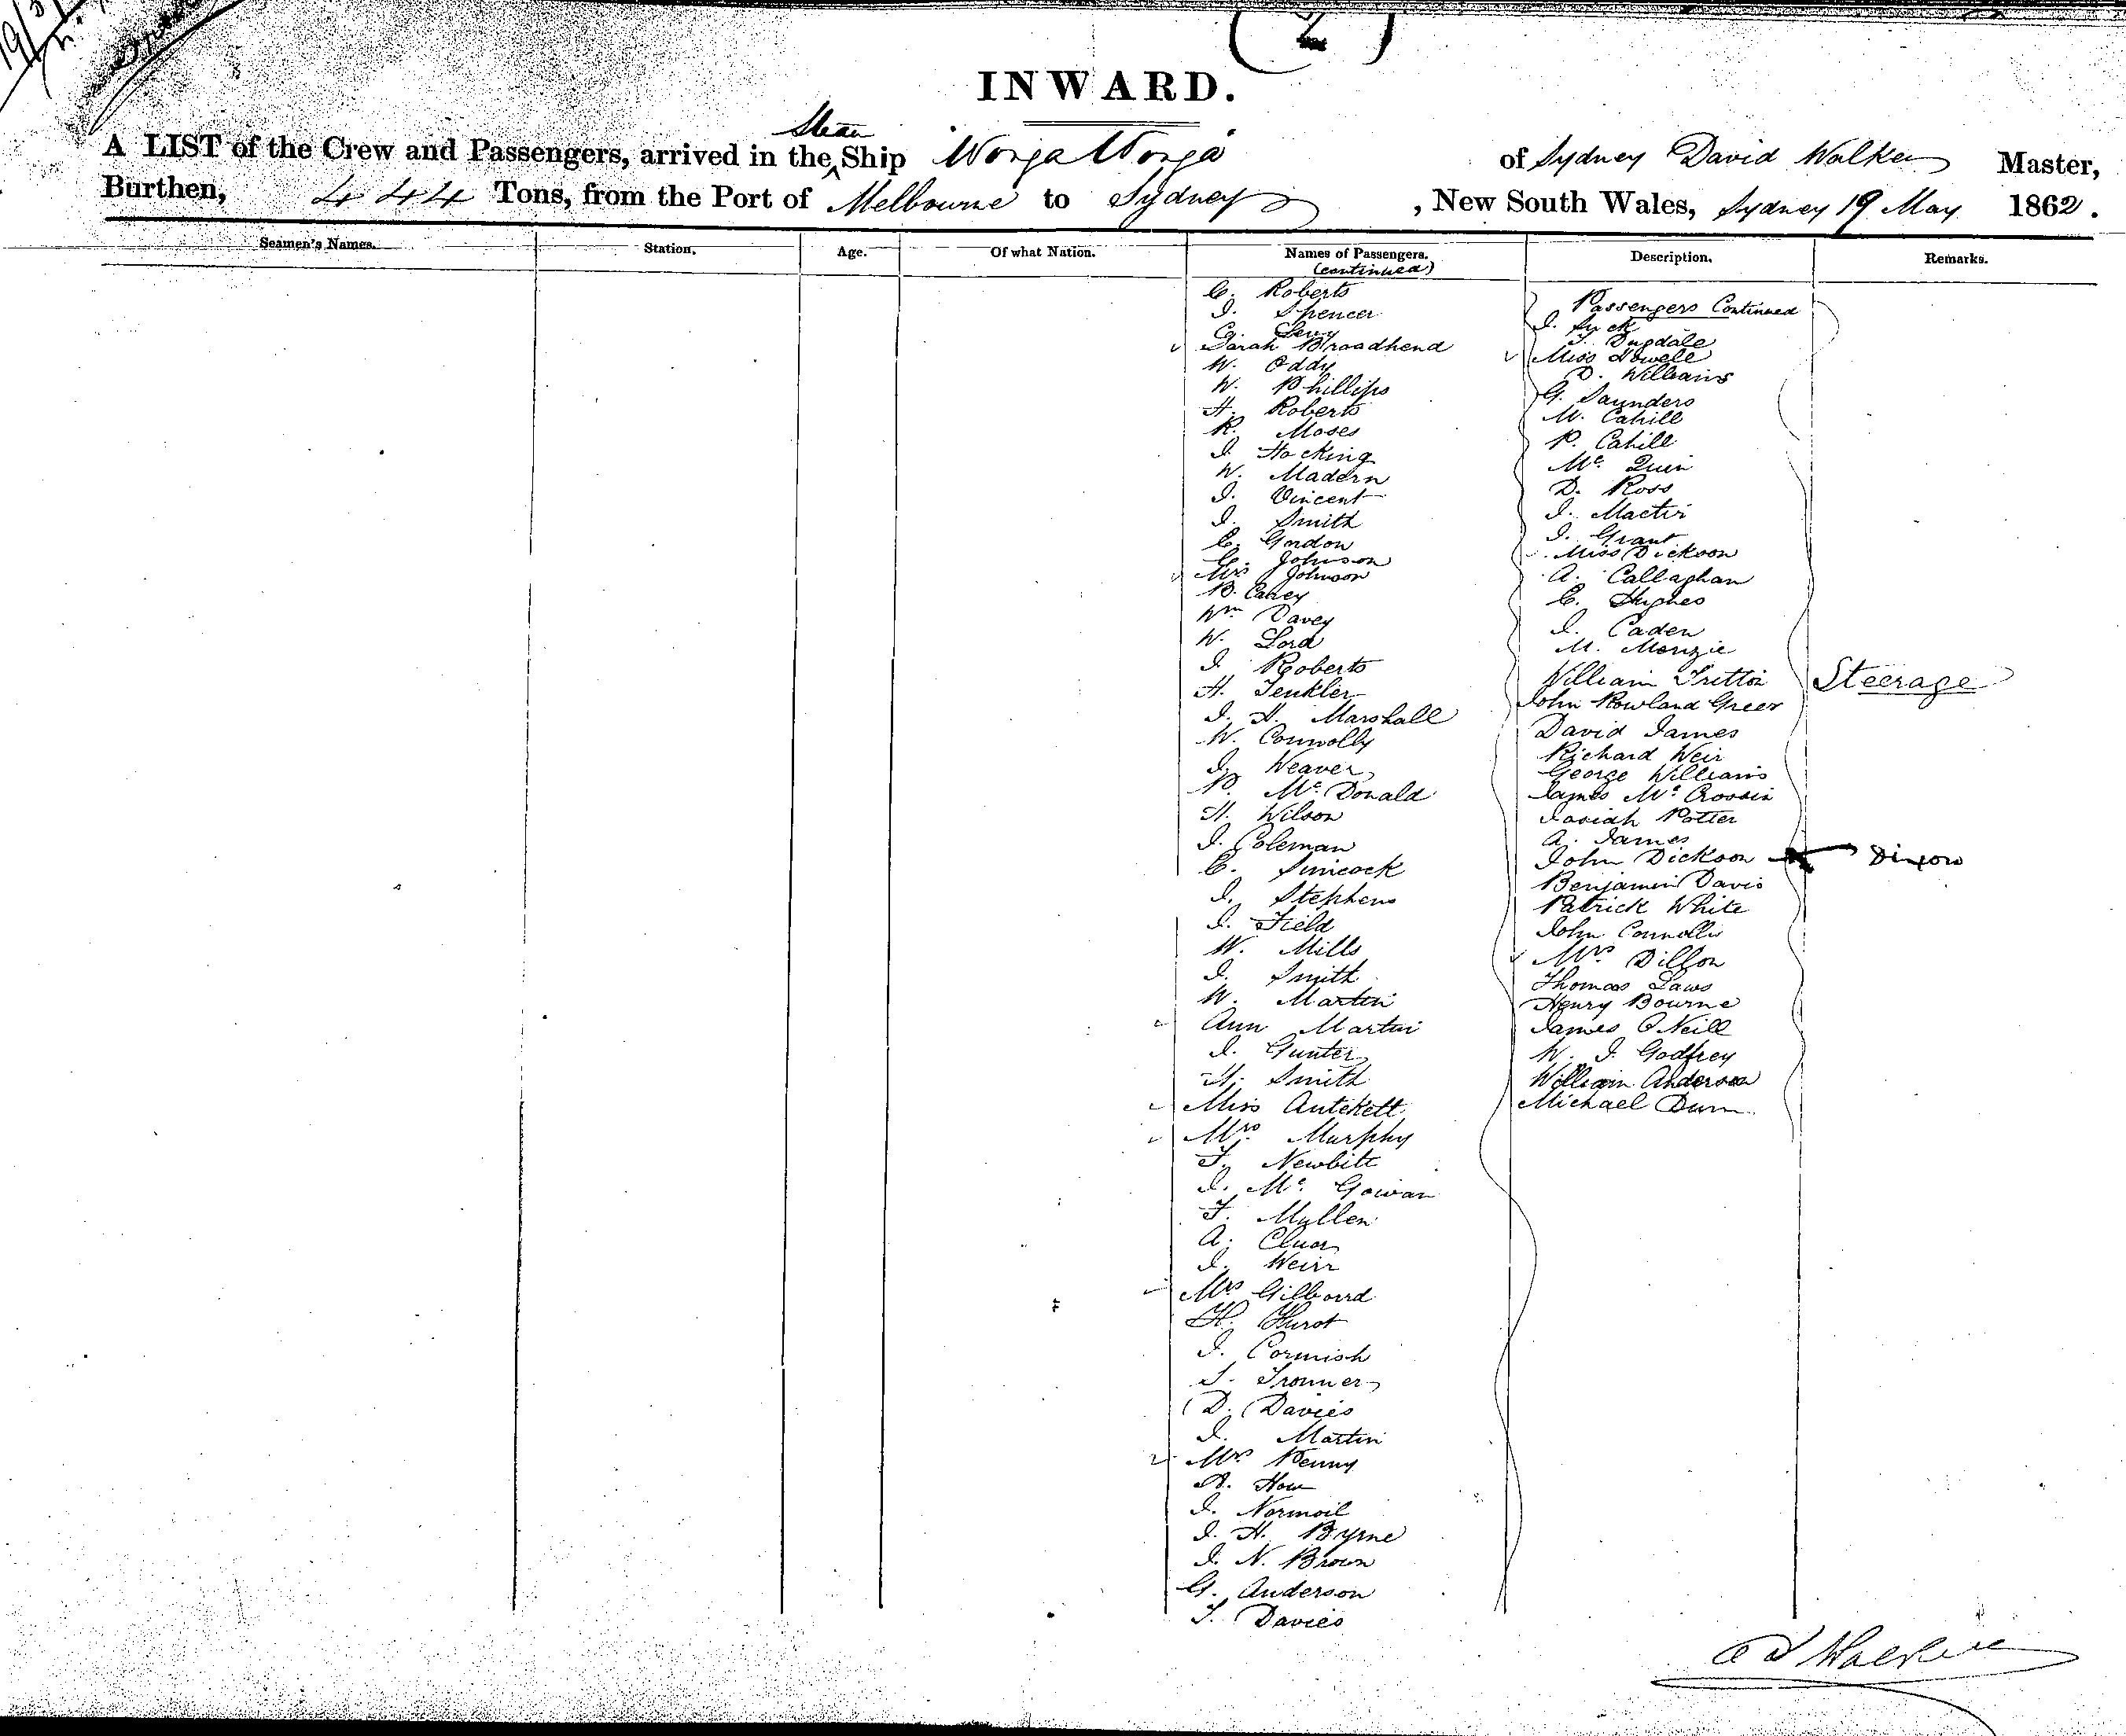 (2)
INWARD.
A LIST of the Crew and Passengers, arrived in the Steam Ship Wonga Wonga of Sydney David Walker Master,
Burthen, 444 Tons, from the Port of Melbourne to Sydney, New South Wales, Sydney 19 May 1862.
Seamen's Names. Station. Age. Of what Nation. Names of Passengers. Description. Remarks.
(continued)
C. Roberts
I. Spencer
Levy
Sarah Broadhend
W. Oddy
W. Phillips
H. Roberts
R. Moses
I. Hocking
W. Madern
I. Vincent
I. Smith
C. Gordon
C. Johnson
Mrs Johnson
B. Carey
Wm Davey
W. Lord
I Roberts
H. Tenkler
I. H. Marshall
W. Connolly
I. Weaver
P. McDonald
H. Wilson
I. Coleman
C. Simcock
I. Stephens
I. Field
W. Mills
I. Smith
W. Martin
Ann Martin
I. Gunter
H. Smith
Miss Antekett
Mrs Murphy
T. Newbitt
I. Mc. Gowan
F. Mullen
A. Cluor
I. Weirr
Mrs Gilbourd
H. Hurst
I. Cormish
S. Tronner
D. Davies
I. Martin
Mrs Penny
A. How
I. Normoil
I. H. Byrne
I. N. Brown
G. Anderson
T. Davies
Passengers Continued
I. Syck
Dugdale
Miss Howell
D. Williams
G. Saunders
M. Cahill
P. Cahill
Mc. Quin
D. Ross
I. Mactir
I. Grant
Miss Dickson
A. Callaghan
C. Hughes
I. Caden
M. Menzie
William Tritton
John Rowland Greer
David James
Richard Weir
George Williams
James McCrossin
Josiah Potter
A. James
John Dickson
Benjamin Davis
Patrick White
John Connollis
Mrs. Dillon
Thomas Laws
Henry Bourne
James O'Neill
W. I. Godfrey
William Anderson
Michael Dunn
Steerage
Dixon